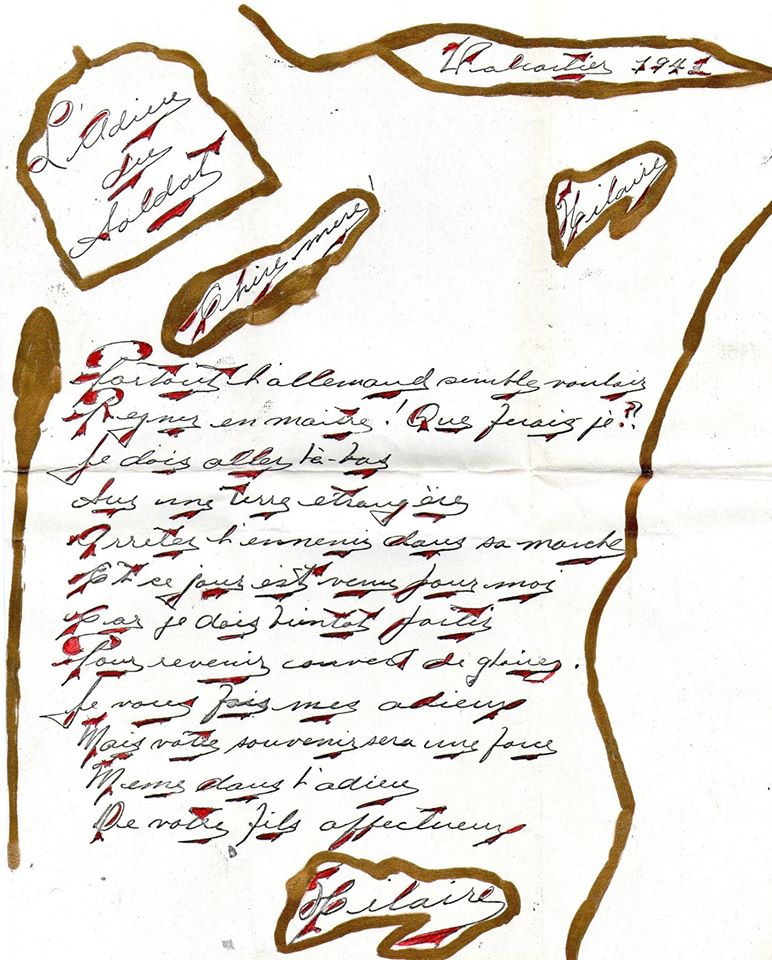 Valcartier 1941
L'Adieu
du
Soldat
Hilaire
Chère mère!
Partout l'allemand semble vouloir
Regner en maitre! Que ferais je??
Je dois aller là-bas
Sur une terre etrangère
Arrêter l'ennemi dans sa marche
Et ce jour est venu pour moi
Car je dois bientot partir
Pour revenir couvert de gloires.
Je vous fais mes adieux
Mais votre souvenir sera une force
Meme dans l'adieu
De votre fils affectueux
Hilaire